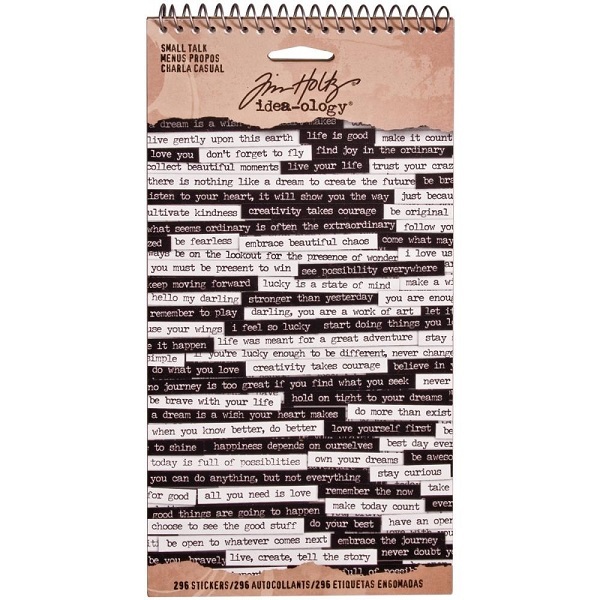 SMALL TALK
MENUS PROPOS
CHARLA CASUAL
Tim Holtz
idea-ology®
a dream is a wish makes
live gently upon this earth life is good make it count
love you don't forget to fly find joy in the ordinary
collect beautiful moments live your life trust your craz
there is nothing like a dream to create the future be bra
isten to your heart, it will show you the way just becau
ultivate kindness creativity takes courage be original
what seems ordinary is often the extraordinary follow you
zed be fearless embrace beautiful chaos come what may
ways be on the lookout for the presence of wonder i love us
you must be present to win see possibility everywhere
keep moving forward lucky is a state of mind make a wi
hello my darling stronger than yesterday you are enoug
remember to play darling, you are a work of art let it
use your wings i feel so lucky start doing things you l
e it happen life was meant for a great adventure stay
simple if you're lucky enough to be different, never change
do what you love creativity takes courage believe in
no journey is too great if you find what you seek never
be brave with your life hold on tight to your dreams
a dream is a wish your heart makes do more than exist
when you know better, do better love yourself first be
to shine happiness depends on ourselves best day ever
today is full of possiblities own your dreams be aweso
you can do anything, but not everything stay curious
for good all you need is love remember the now take
good things are going to happen make today count ever
choose to see the good stuff do your best have an open
it be open to whatever comes next embrace the journey
be you bravely live, create, tell the story never doubt
full of possib
296 STICKERS/296 AUTOCOLLANTS/296 ETIQUETAS ENGOMADAS